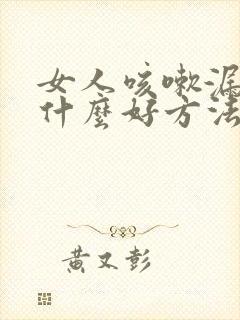 女人咳嗽漏
什麼好方法
黃又彭